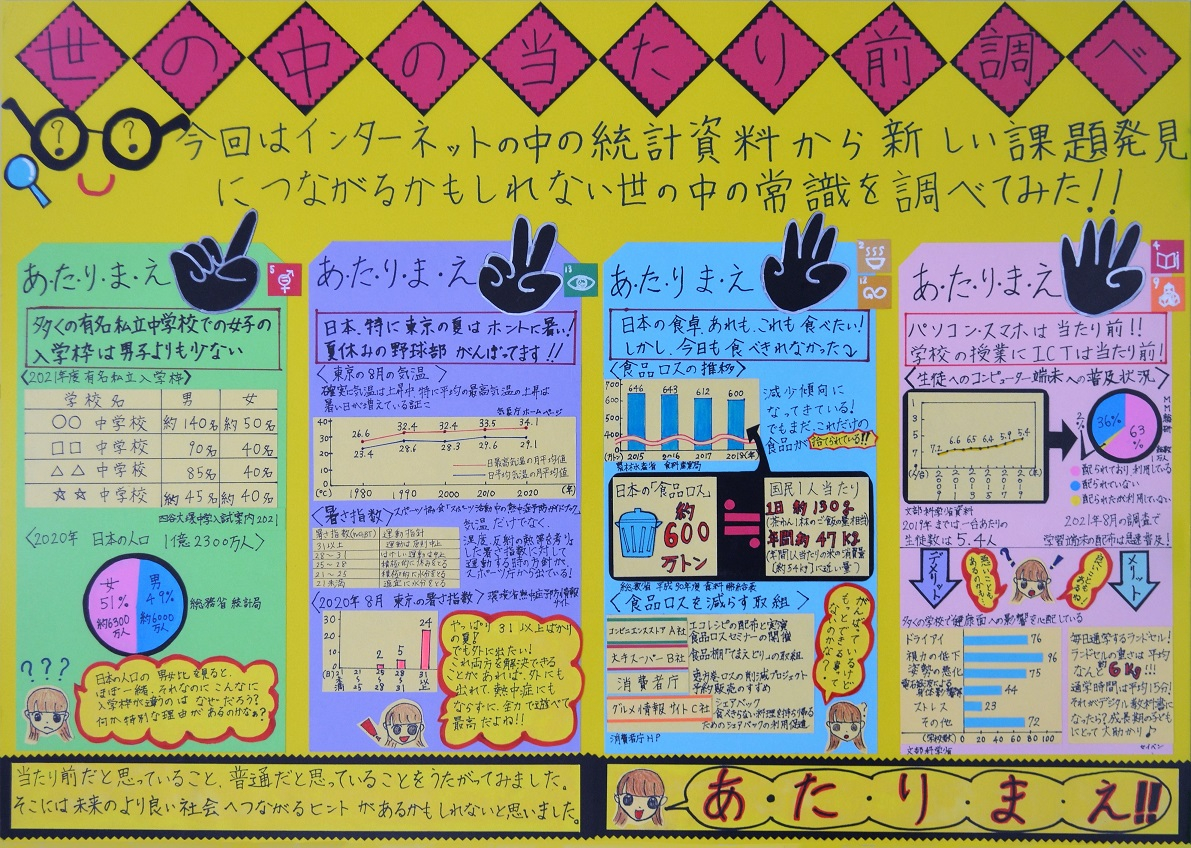 世の中の当たり前調べ
今回はインターネットの中の統計資料から新しい課題発見
につながるかもしれない世の中の常識を調べてみた!!
あ・た・り・ま・え
5
多くの有名私立中学校での女子の
入学枠は男子よりも少ない
〈2021年度有名私立入学枠〉
学校名 男 女
○○中学校 約140名 約50名
□□中学校 90名 40名
△△中学校 85名 40名
☆☆中学校 約45名 約40名
四谷大塚中学入試案内2021
〈2020年 日本の人口 1億2300万人〉
女 51% 約6300万人
男 49% 約6000万人
総務省統計局
???
日本の人口の男女比を見ると、
ほぼ一緒。それなのにこんなに
入学枠が違うのはなぜだろう?
何か特別な理由があるのかなぁ?
あ・た・り・ま・え
13
日本、特に東京の夏はホントに暑い!
夏休みの野球部がんばってます!!
〈東京の8月の気温〉
確実に気温は上昇中、特に平均の最高気温の上昇は
暑い日が増えている証に
気象庁ホームページ
40
30
20
10
0
(℃)
26.6 32.4 32.4 33.5 34.1
23.4 28.6 28.3 29.6 29.1
日最高気温の月平均値
日平均気温の月平均値
1980 1990 2000 2010 2020 (年)
〈暑さ指数〉
スポーツ協会「スポーツ活動中の熱中症予防ガイドブック」
暑さ指数(WBGT) 運動指針
31以上 運動は原則中止
28〜31 はげしい運動は中止
25〜28 積極的に休みをとる
21〜25 積極的に水分をとる
21未満 適宜に水分をとる
気温だけでなく、
湿度、反射の熱等を考慮
した暑さ指数に対して
運動する時の方針が、
スポーツ庁から出ている!
〈2020年8月 東京の暑さ指数〉
環境省熱中症予防情報サイト
30
20
10
0
(日)
2 5 24
21未満 21〜25 25〜28 28〜31 31以上
やっぱり31以上ばかり
の夏!
でも外に出たい!
これ両方を解決できる
ことがあれば、外にも
出れて、熱中症にも
ならずに、全力で遊べて
最高だよね!!
あ・た・り・ま・え
2
12
日本の食卓、あれも、これも食べたい!
しかし、今日も食べきれなかった
〈食品ロスの推移〉
700
600
500
400
0
(万トン)
646 643 612 600
2015 2016 2017 2018(年)
農林水産省 食料産業局
減少傾向に
なってきている!
でもまだ、これだけの
食品が捨てられている!!
日本の「食品ロス」
約
600
万トン
≒
国民1人当たり
1日 約130g
(茶わん1杯のご飯の量相当)
年間 約47kg
(年間1人当たりの米の消費量
(約54kg)に近い量)
総務省 平成30年度 食料需給表
〈食品ロスを減らす取組〉
コンビニエンスストアA社
エコレシピの配布と実質
食品ロスセミナーの開催
大手スーパーB社
食品棚「てまえどり」の取組
消費者庁
恵方巻ロスの削減プロジェクト
予約販売のすすめ
グルメ情報サイトC社
シェアバック
食べきらない料理を持ち帰る
ためのシェアバックの利用促進
消費者庁HP
がんばっているけど
もっとできる事って
ないのかな?
あ・た・り・ま・え
4
9
パソコン・スマホは当たり前!!
学校の授業にICTは当たり前!
〈生徒へのコンピューター端末への普及状況〉
1
3
5
7
(人/台)
7.2 6.6 6.5 6.4 5.9 5.4
文部科学省資料
2%
36%
63%
MM総研
配られており利用している
配られていない
配られたが利用していない
2019年までは一台あたりの
生徒数は5.4人
2021年8月の調査で
学習端末の配布は急速普及!
デメリット
悪いこともあるのかも。
良いことも!
メリット
多くの学校で健康面への影響を心配している
ドライアイ 76
視力の低下 96
姿勢の悪化 75
電磁波による身体影響 44
ストレス 23
その他 72
(学校数) 0 20 40 60 80 100
文部科学省
毎日通学するランドセル!
ランドセルの重さは平均
なんと6kg!!!
通学時間は平均15分!
それがデジタル教科書に
なったら?成長期の子ども
にとって大助かり♪
セイバン
当たり前だと思っていること、普通だと思っていることをうたがってみました。
そこには未来のより良い社会へつながるヒントがあるかもしれないと思いました。
あ・た・り・ま・え!!